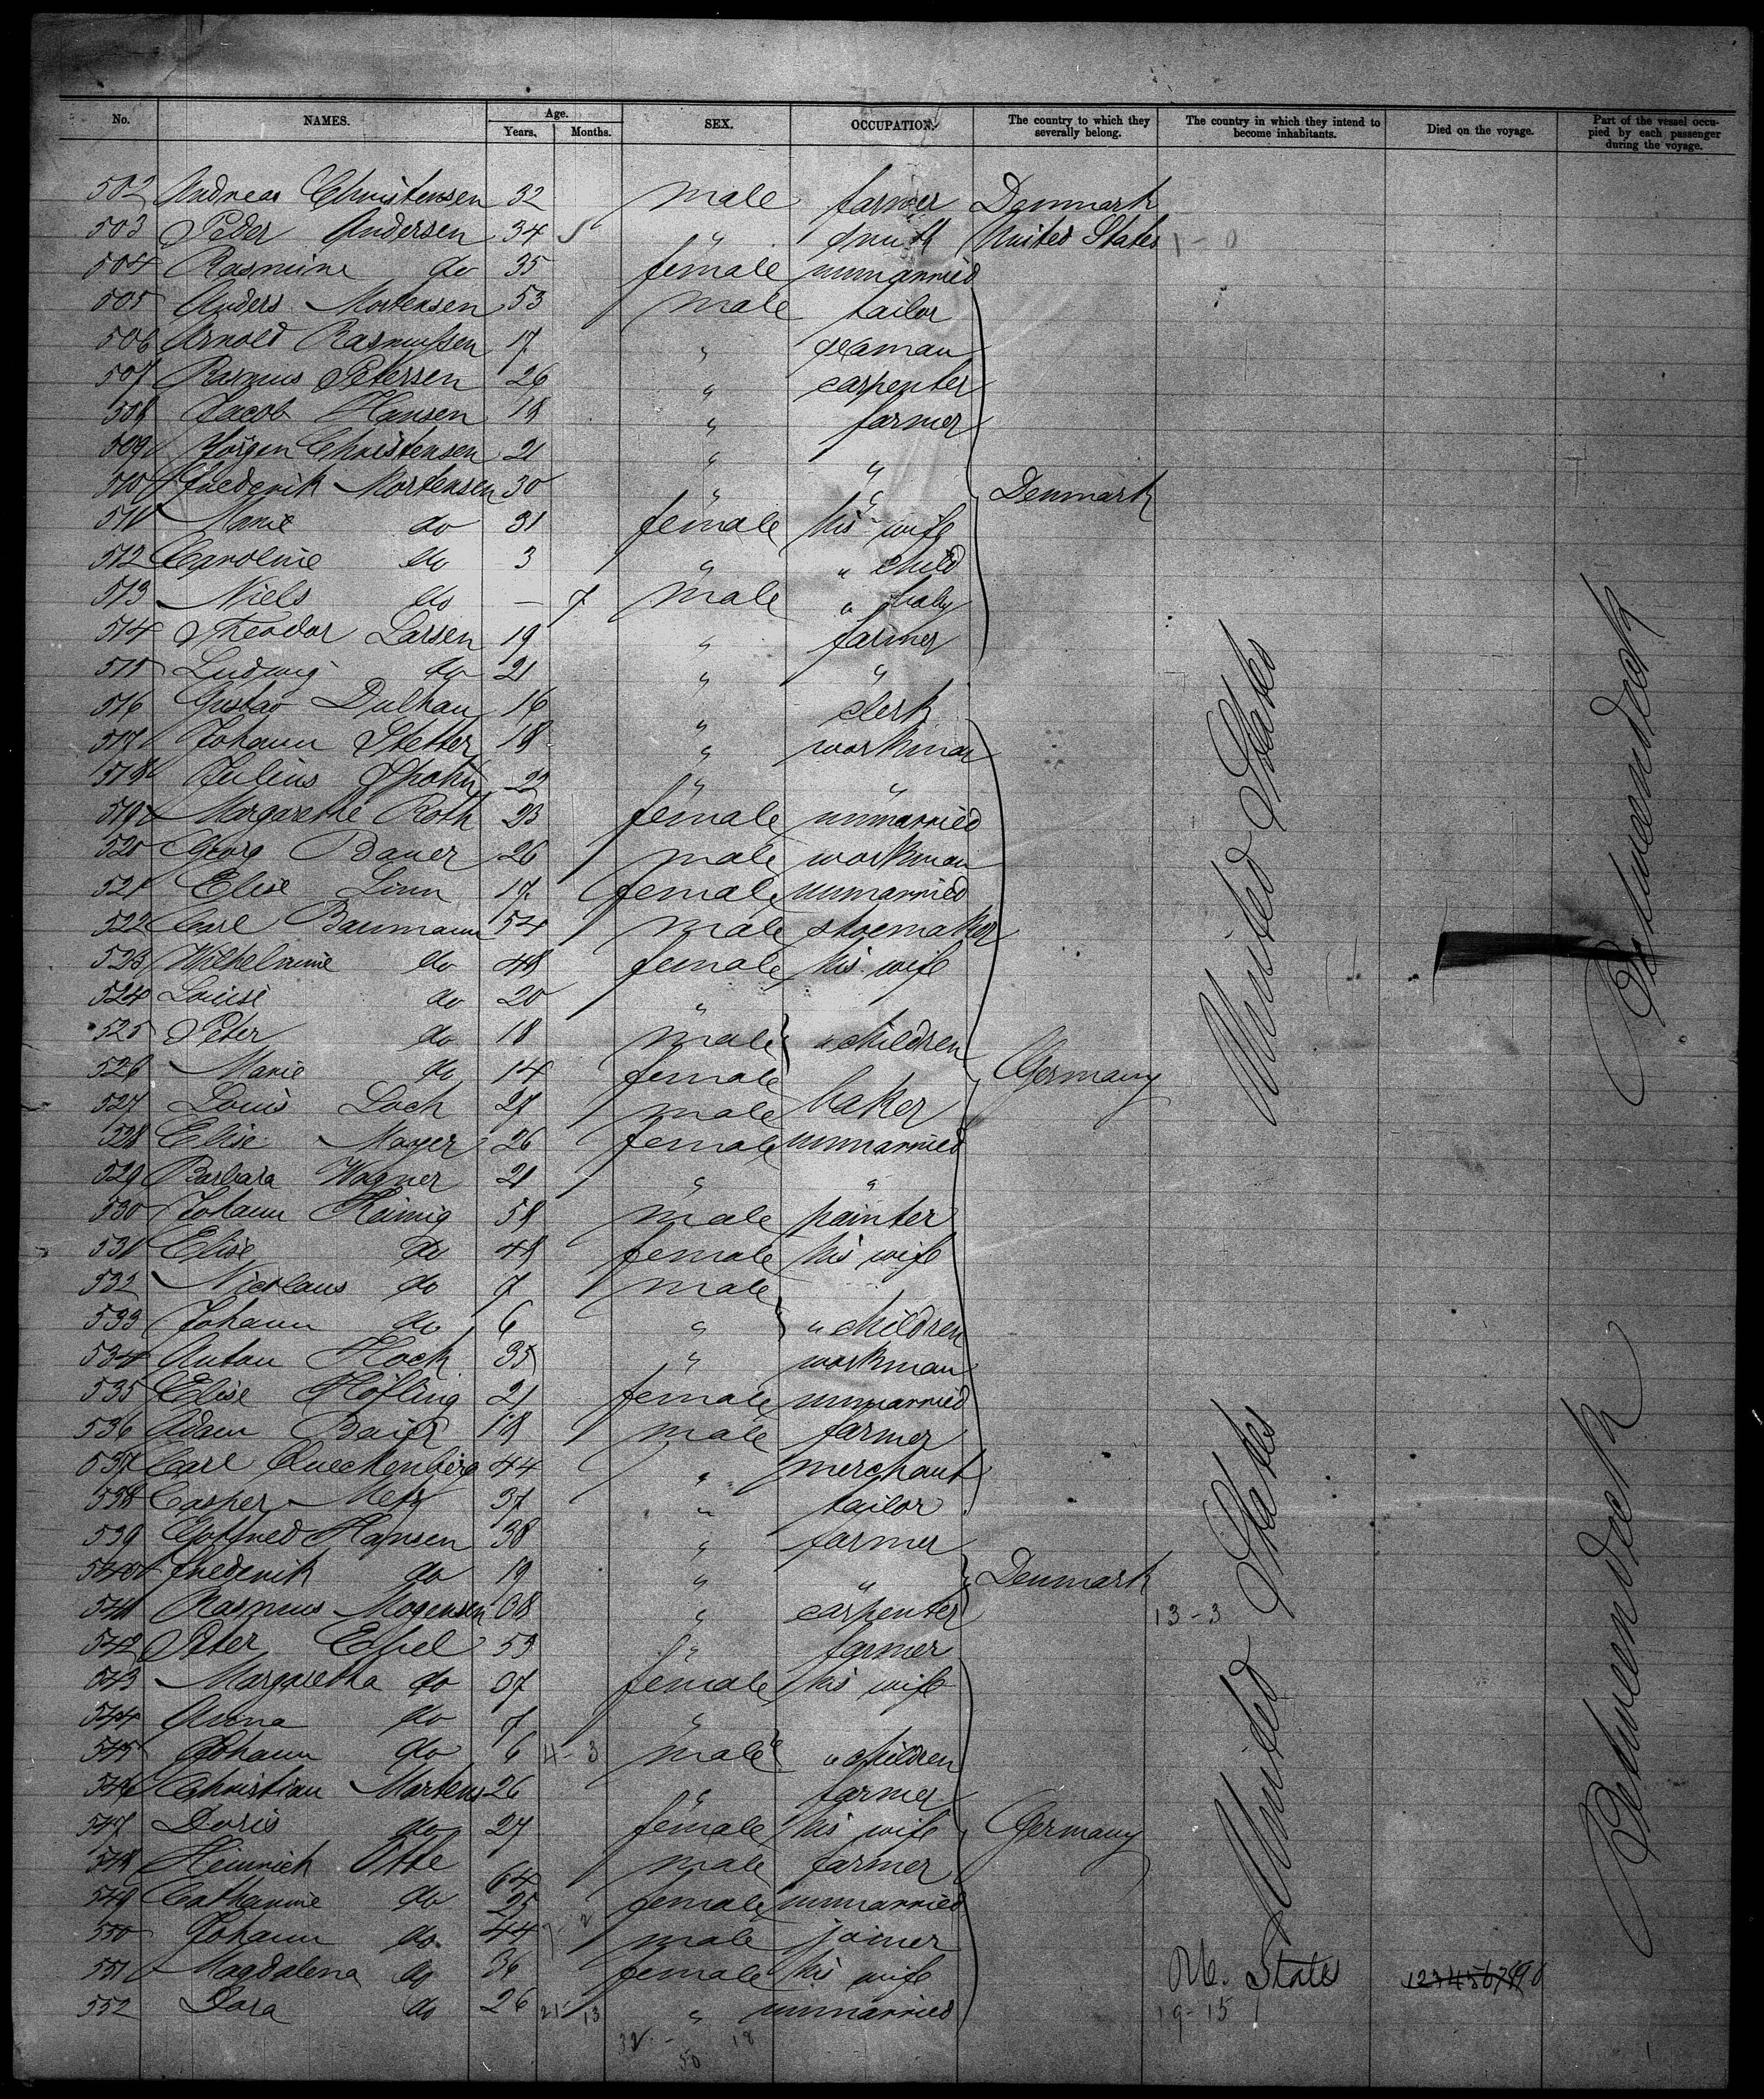 No. NAMES. Age. Years. Months. SEX. OCCUPATION. The country to which they severally belong. The country in which they intend to become inhabitants. Died on the voyage. Part of the vessel occupied by each passenger during the voyage.
502 Andreas Christensen 32 male farmer Denmark
503 Peder Andersen 34 " smith United States 1-0
504 Rasmine do 35 female unmarried
505 Anders Mortensen 53 male tailor
506 Arnold Rasmussen 17 " seaman
507 Rasmus Petersen 26 " carpenter
508 Jacob Hansen 18 " farmer
509 Jörgen Christensen 21 " "
510 Frederik Mortensen 30 " " Denmark
511 Marie do 31 female his wife
512 Caroline do 3 " " child
513 Niels do — 7 male " baby
514 Theodor Larsen 19 " farmer
515 Ludwig do 21 " "
516 Gustav 16 " clerk
517 Johann Stetter 18 " workman
518 Julius Spohn 22 " "
519 Margarethe Roth 23 female unmarried
520 Georg Bauer 26 male workman
521 Elise Linn 17 female unmarried
522 Carl Baumann 54 male shoemaker
523 Wilhelmine do 48 female his wife
524 Louise do 20 "
525 Peter do 18 male " children
526 Marie do 14 female Germany
527 Louis Loch 27 male baker
528 Elise Mayer 26 female unmarried
529 Barbara Wagner 21 " "
530 Johann 58 male painter
531 Elise do 48 female his wife
532 Nicolaus do 7 male
533 Johann do 6 " " children
534 Anton Hock 35 " workman
535 Elise Höfling 21 female unmarried
536 Adam 18 male farmer
537 Carl Queckenberg 44 " merchant
538 Casper Metz 37 " tailor
539 Gottfried Hansen 38 " farmer
540 Frederik do 19 " " Denmark
541 Rasmus Mogensen 38 " carpenter 13-3
542 Peter 53 " farmer
543 Margaretha do 37 female his wife
544 Anna do 7 "
545 Johann do 6 4-3 male " children
546 Christian Martens 26 " farmer
547 Doris do 27 female his wife Germany
548 Heinrich Otte 64 male farmer
549 Catharine do 25 female unmarried
550 Johann do 44 male joiner
551 Magdalena do 36 female his wife
552 Dora do 26 21-13 " unmarried 19-15
32 - 18
50
United States
United States
U. States
Betweendeck
Betweendeck